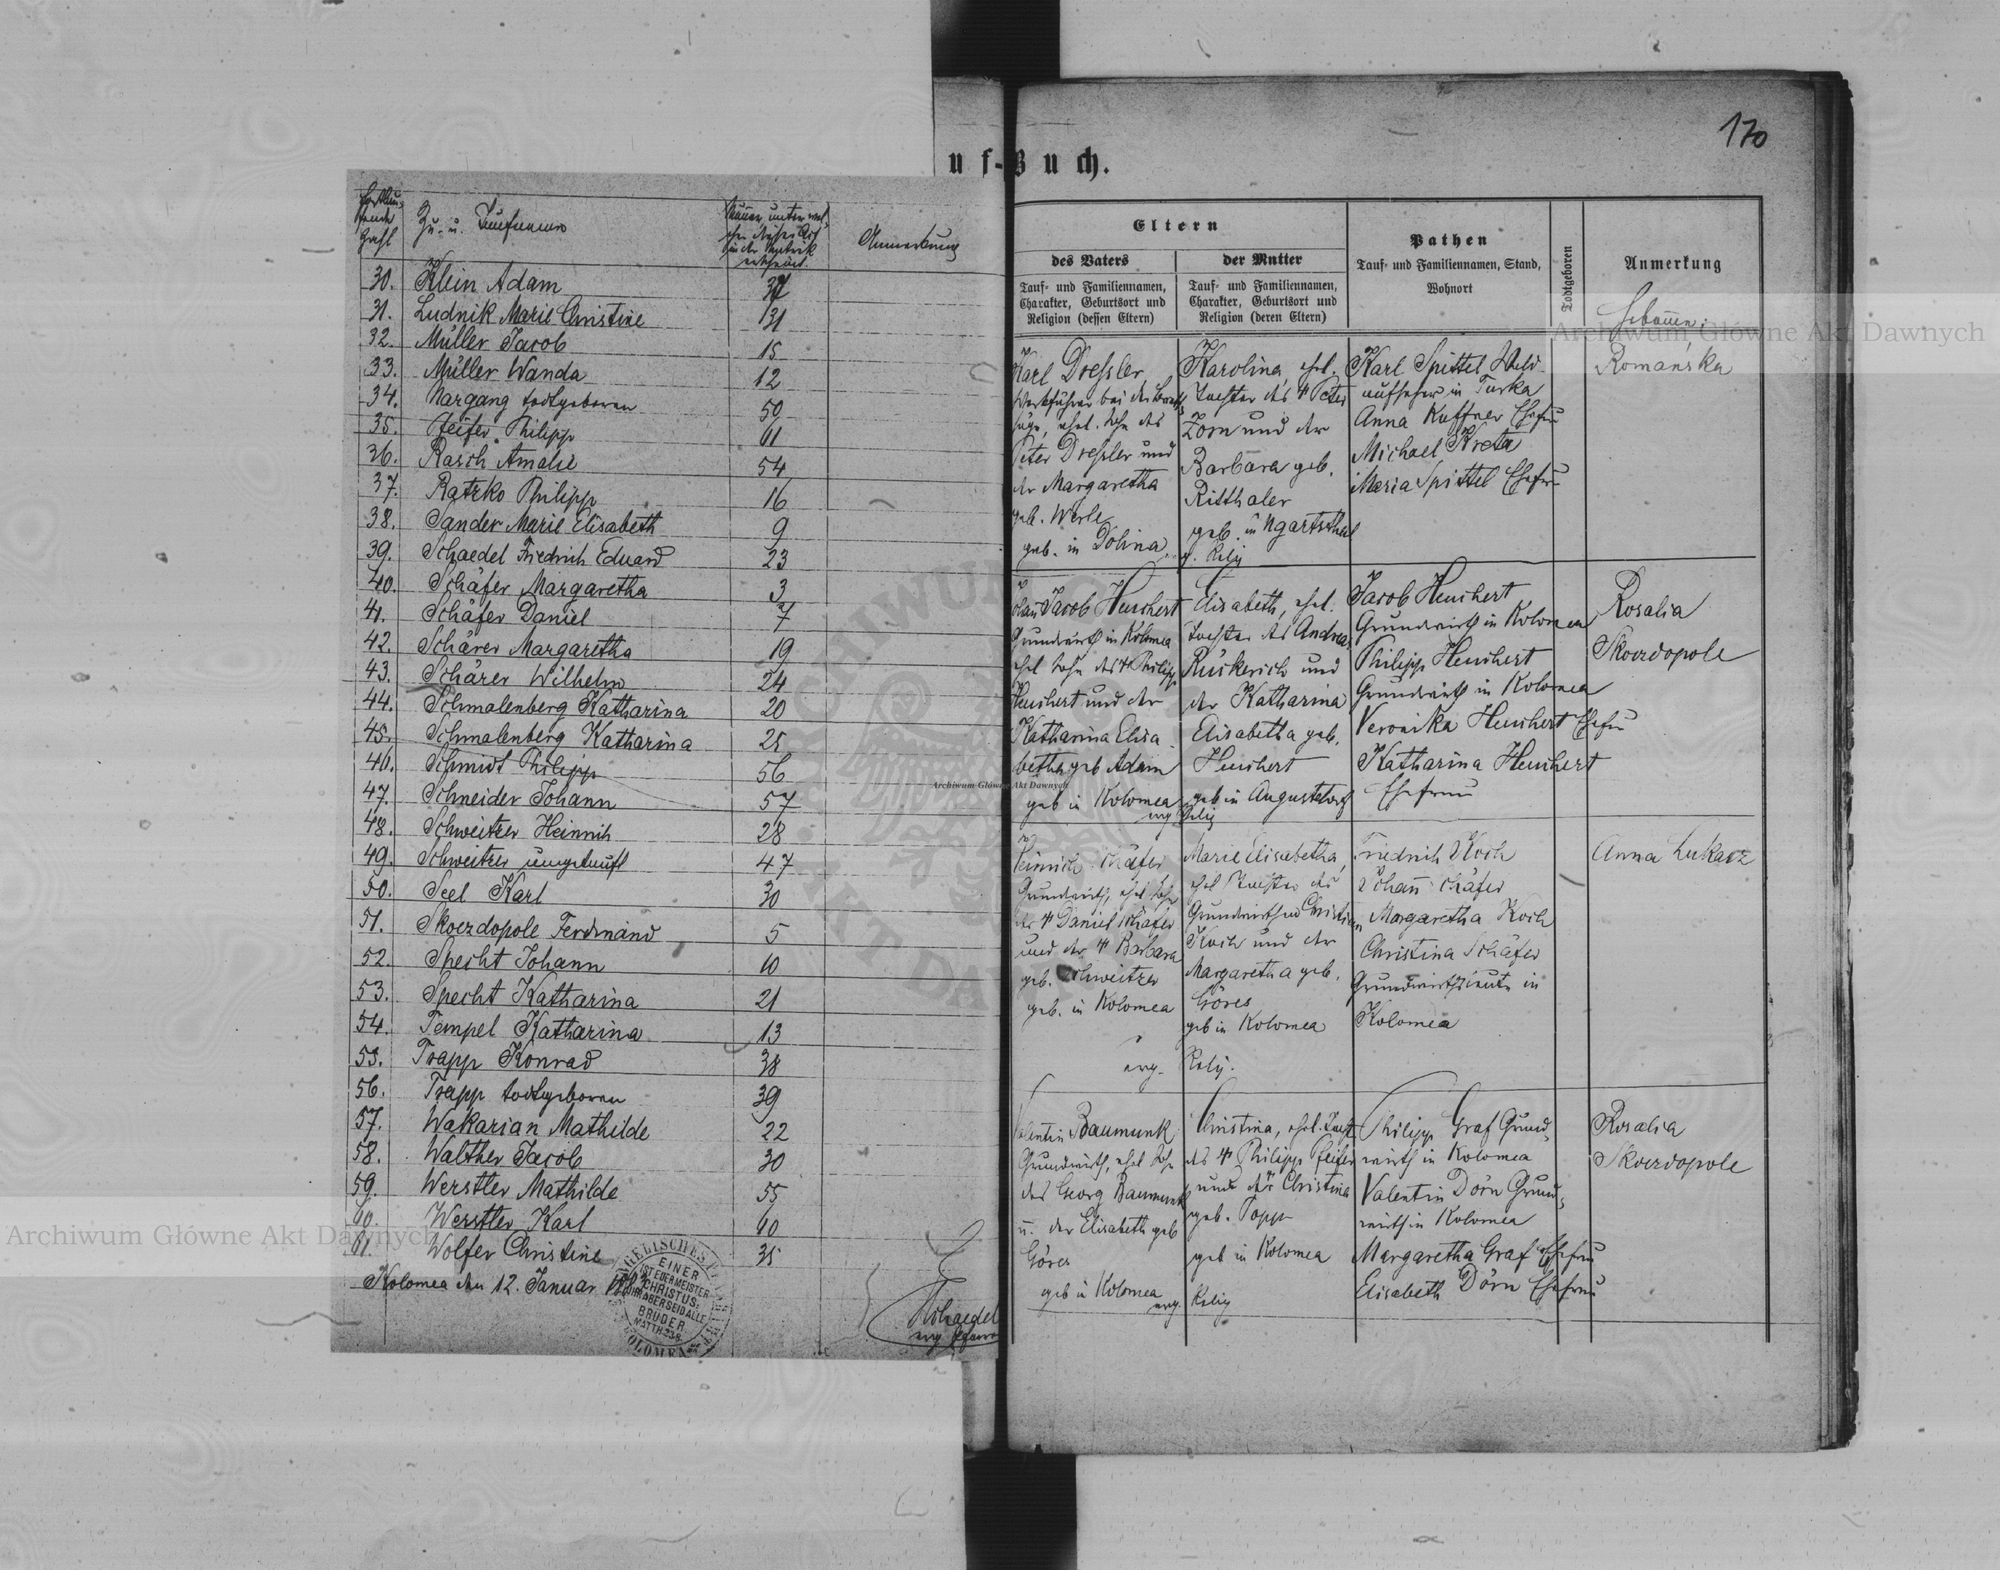 170
uf-Buch.
Zu- u. Taufname
Anmerkung
30. Klein Adam 37
31. Ludnik Marie Christine 31
32. Müller Jacob 15
33. Müller Wanda 12
34. Nargang todtgeboren 50
35. Pfeifer Philipp 61
36. Rasch Amalie 54
37. Ratzko Philipp 16
38. Sander Marie Elisabeth 9
39. Schaedel Friedrich Eduard 23
40. Schäfer Margaretha 3
41. Schäfer Daniel 7
42. Schärer Margaretha 19
43. Schärer Wilhelm 24
44. Schmalenberg Katharina 20
45. Schmalenberg Katharina 25
46. Schmidt Philipp 56
47. Schneider Johann 57
48. Schweitzer Heinrich 28
49. Schweitzer ungetauft 47
50. Seel Karl 30
51. Skoerdopole Ferdinand 5
52. Specht Johann 60
53. Specht Katharina 21
54. Tempel Katharina 13
55. Trapp Konrad 38
56. Trapp todtgeboren 39
57. Wakarian Mathilde 22
58. Walther Jacob 30
59. Werstler Mathilde 55
60. Werstler Karl 60
61. Wolfer Christine 35
Kolomea den 12. Januar
EINER
IST EUER MEISTER
CHRISTUS,
IHR ABER SEID ALLE
BRÜDER
MATTH 23,8
Schaedel
Eltern
des Vaters
Tauf- und Familiennamen,
Charakter, Geburtsort und
Religion (dessen Eltern)
der Mutter
Tauf- und Familiennamen,
Charakter, Geburtsort und
Religion (deren Eltern)
Pathen
Tauf- und Familiennamen, Stand,
Wohnort
Todtgeboren
Anmerkung
Hebamme:
Karl Dressler
Werkführer bei der
ehel. Sohn des
Peter Dressler und
der Margaretha
geb. Werle
geb. in Dolina
Karolina ehel.
Tochter des † Peter
Zorn und der
Barbara geb.
Ritthaler
geb. in Ugartsthal
Relig
Karl Spittel Wald-
aufseher in Turka
Anna Kuffner Ehefrau
Michael Kreta
Maria Spittel Ehefrau
Romańska
Johan Jacob Heuchert
Grundwirth in Kolomea
ehel Sohn des † Philipp
Heuchert und der
Katharina Elisa
betha geb Adam
geb in Kolomea
evg
Elisabeth, ehel.
Tochter des Andreas
Rückerich und
der Katharina
Elisabetha geb.
Heuchert
geb in Augustdorf
Relig
Jacob Heuchert
Grundwirth in Kolomea
Philipp Heuchert
Grundwirth in Kolomea
Veronika Heuchert Ehefrau
Katharina Heuchert
Ehefrau
Rosalia
Skoerdopole
Heinrich Schäfer
Grundwirth, ehel Sohn
des † Daniel Schäfer
und der † Barbara
geb. Schweitzer
geb. in Kolomea
evg.
Marie Elisabetha
ehel Tochter des
Grundwirthen Christian
Koch und der
Margaretha geb.
Göres
geb in Kolomea
Relig.
Friedrich Koch
Johann Schäfer
Margaretha Koch
Christina Schäfer
Grundwirthsleute in
Kolomea
Anna Lukacz
Valentin Baumunk
Grundwirth, ehel Sohn
des Georg Baumunk
u. der Elisabeth geb
Göres
geb in Kolomea
evg.
Christina, ehel. Tocht
des † Philipp Pfeifer
und der Christina
geb. Popp
geb in Kolomea
Relig
Philipp Graf Grund-
wirth in Kolomea
Valentin Dörn Grund-
wirth in Kolomea
Margaretha Graf Ehefrau
Elisabeth Dörn Ehefrau
Rosalia
Skoerdopole
Archiwum Główne Akt Dawnych
Archiwum Główne Akt Dawnych
Archiwum Główne Akt Dawnych